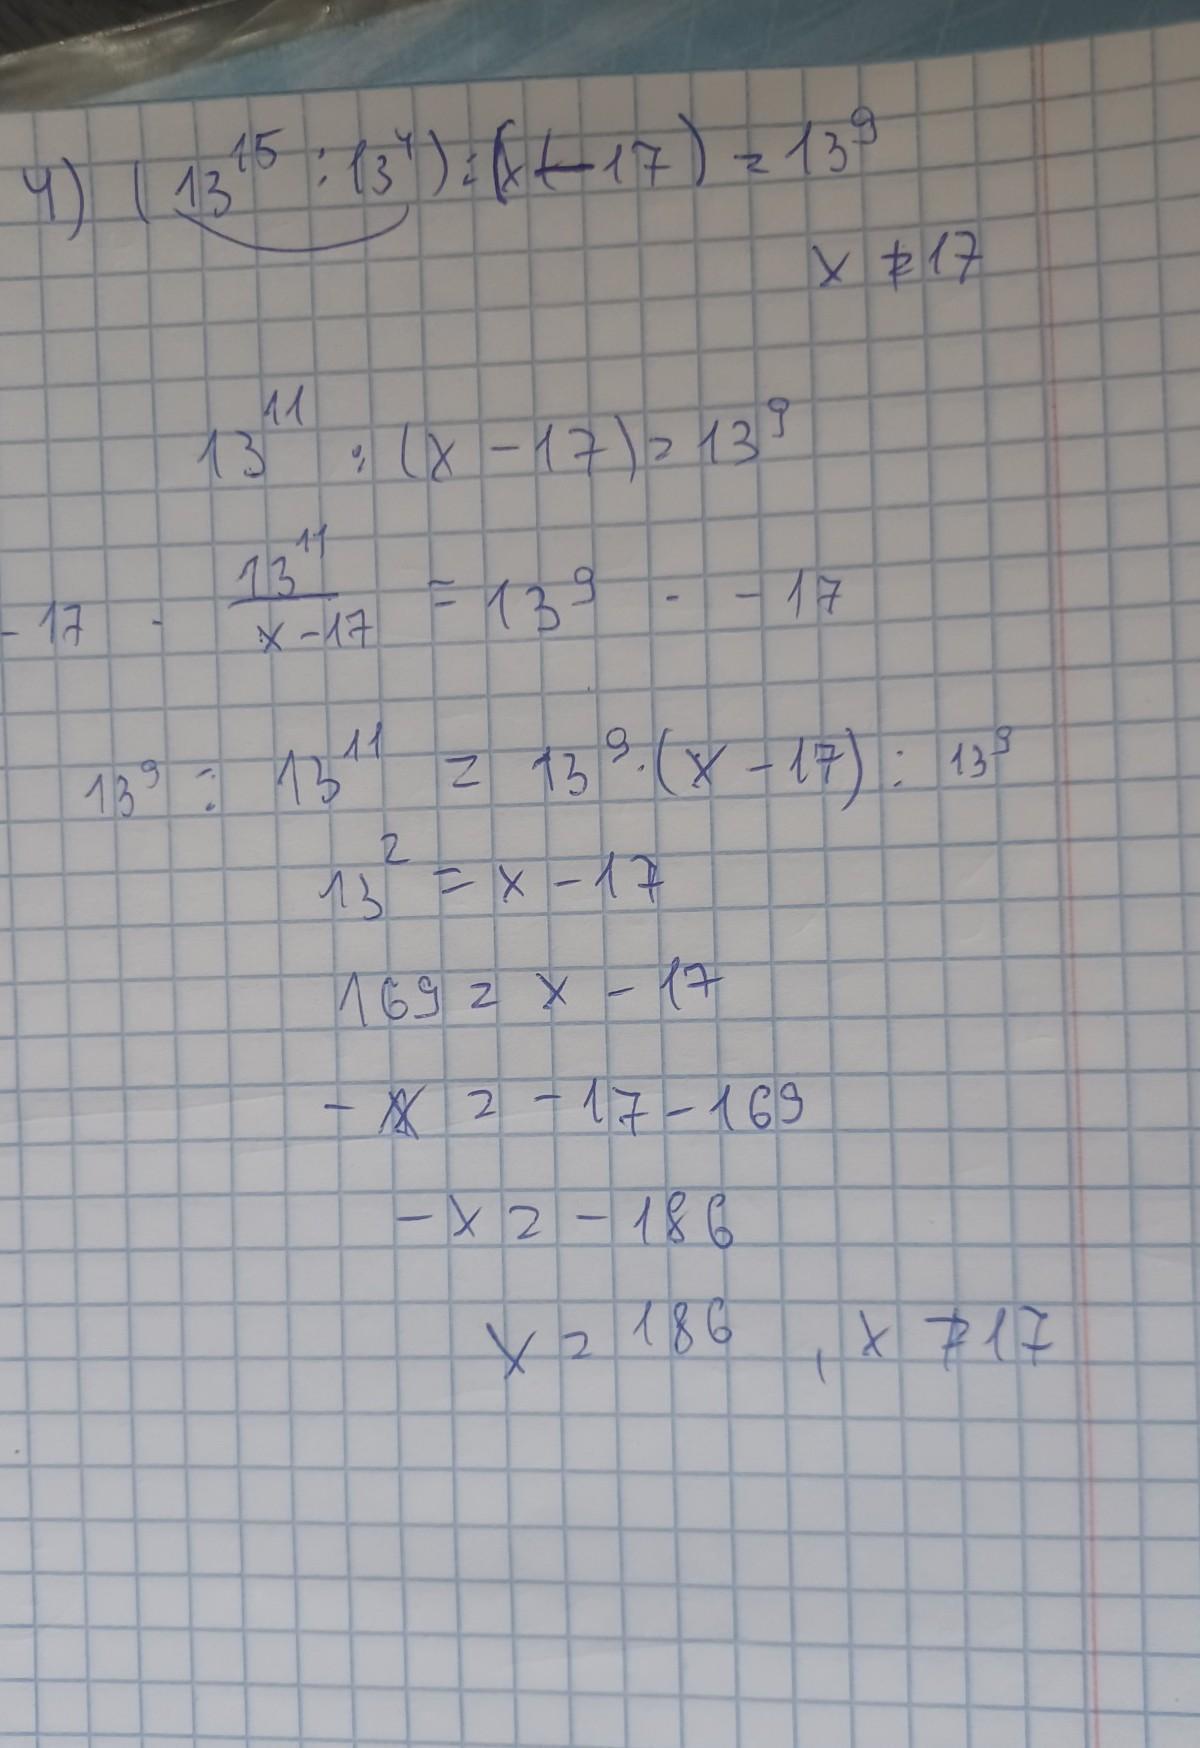 4) (13¹⁵ : 13⁴) : (x - 17) = 13⁹
x ≠ 17
13¹¹ : (x - 17) = 13⁹
- 17 · 13¹¹ / x - 17 = 13⁹ · - 17
13⁹ : 13¹¹ = 13⁹ · (x - 17) : 13⁹
13² = x - 17
169 = x - 17
- x = - 17 - 169
- x = - 186
x = 186 , x ≠ 17